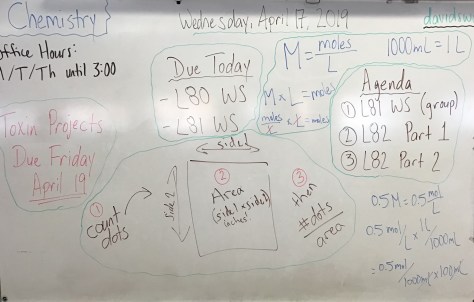 Chemistry
Wednesday, April 17, 2019
Office Hours:
M/T/Th until 3:00
Due Today
- L80 WS
- L81 WS
M = moles
L
1000mL = 1L
M x L = moles
moles x L = moles
L
Agenda
① L81 WS (group)
② L82 Part 1
③ L82 Part 2
Toxin Projects
Due Friday
April 19
① count
dots
side 1
side 2
② Area
(side 1 x side 2)
inches²
③ then
# dots
area
0.5M = 0.5 mol
L
0.5 mol/L x 1L/1000mL
= 0.5 mol/1000mL x 100mL